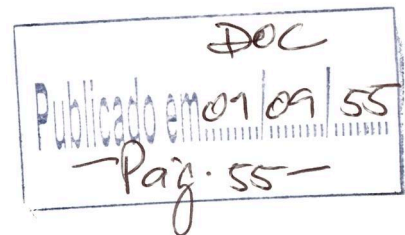 DOC
Publicado em 01/09/55
-Pág. 55-